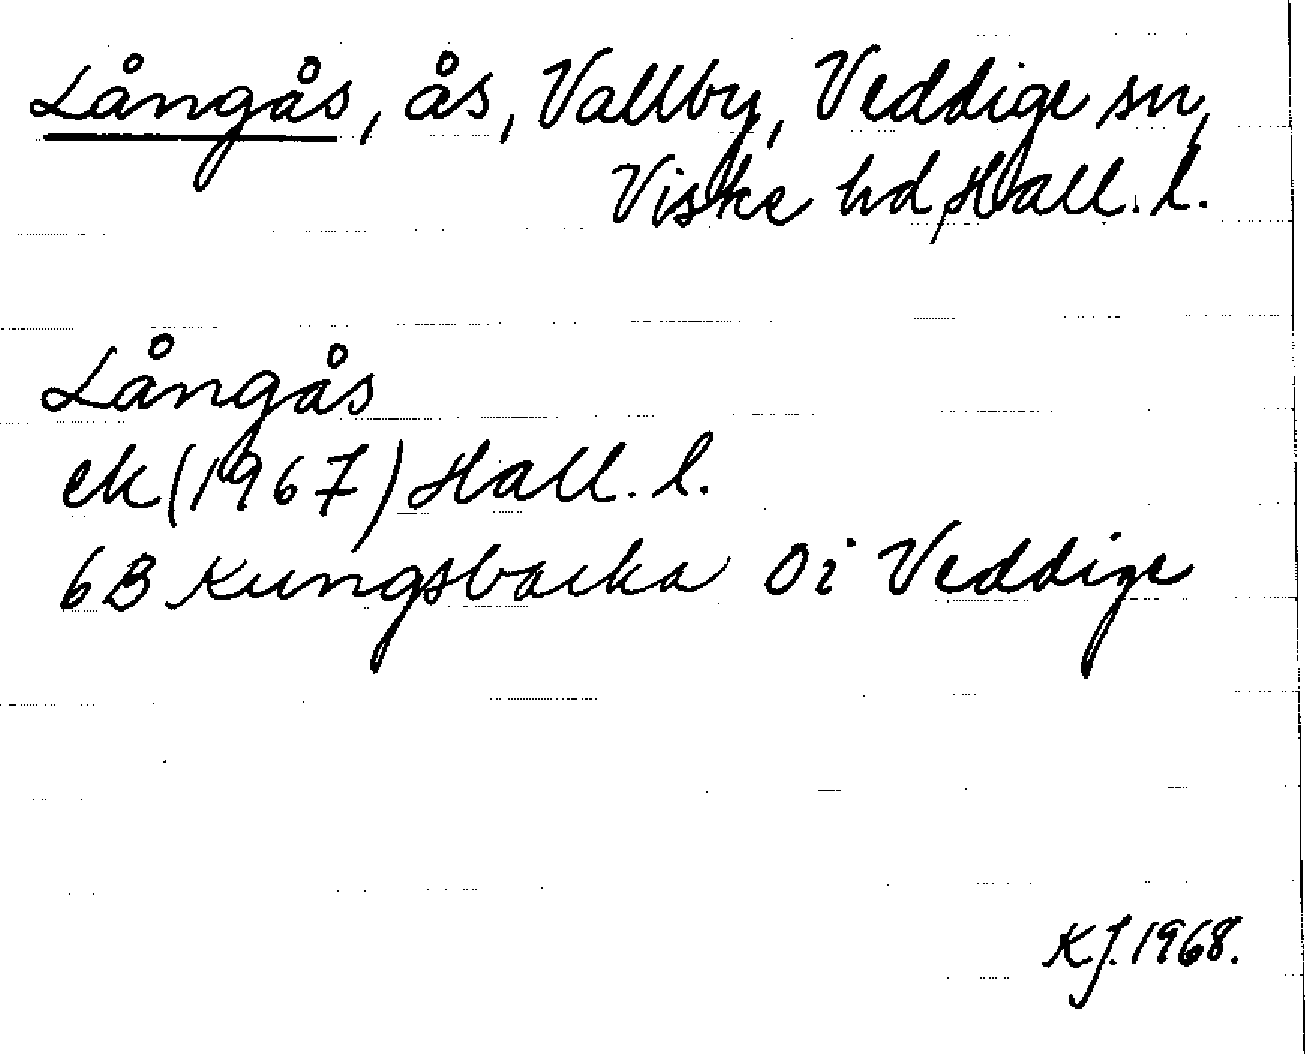 Långås, ås, Vallby, Veddige sn,
Viske hd, Hall. l.
Långås
ek (1967) Hall. l.
6B Kungsbacka 0i Veddige
K.J. 1968.